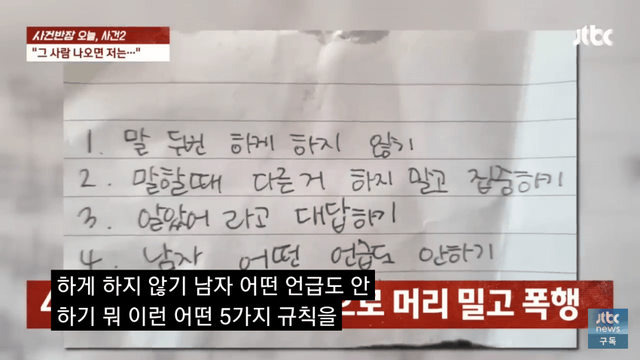 사건반장 오늘, 사건2
"그 사람 나오면 저는…"
jtbc
1. 말 두번 하게 하지 않기
2. 말할때 다른거 하지 말고 집중하기
3. 알았어 라고 대답하기
4. 남자 어떤 언급도 안하기
하게 하지 않기 남자 어떤 언급도 안
하기 뭐 이런 어떤 5가지 규칙을
로 머리 밀고 폭행
jtbc
news
구독